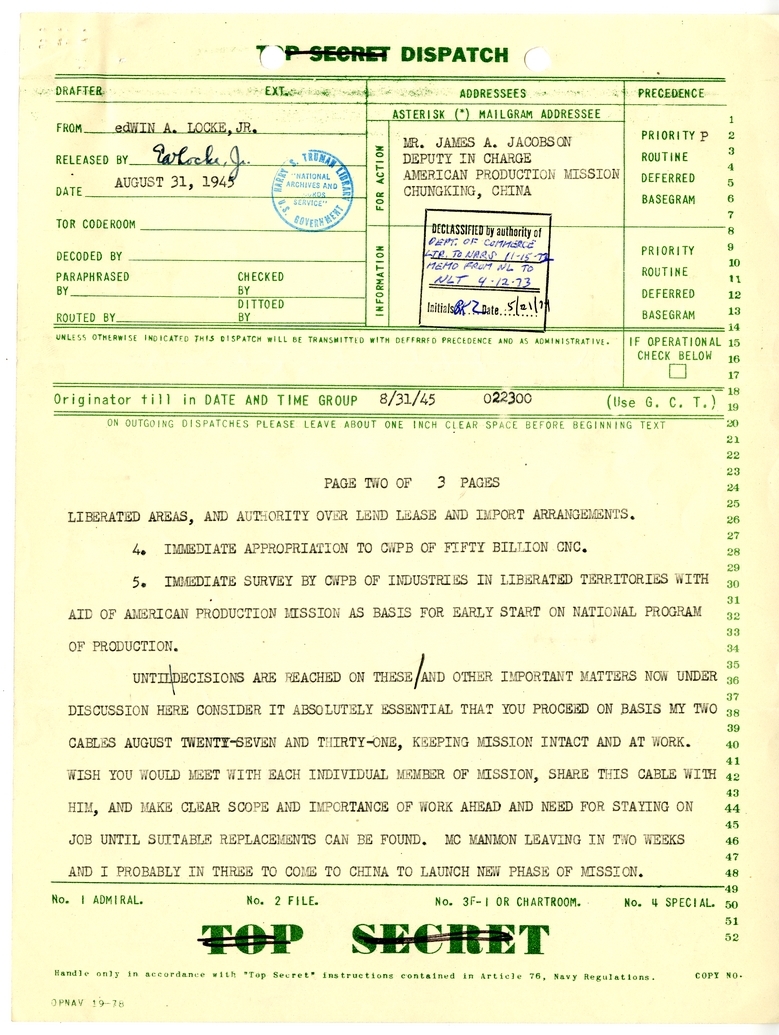 TOP SECRET DISPATCH
DRAFTER EXT. ADDRESSEES PRECEDENCE
ASTERISK (*) MAILGRAM ADDRESSEE
FROM edWIN A. LOCKE, JR.
RELEASED BY EALocke, Jr.
DATE AUGUST 31, 1945
TOR CODEROOM
DECODED BY
PARAPHRASED BY
CHECKED BY
DITTOED BY
ROUTED BY
HARRY S. TRUMAN LIBRARY
"NATIONAL
ARCHIVES AND
SERVICE"
U.S. GOVERNMENT
FOR ACTION
MR. JAMES A. JACOBSON
DEPUTY IN CHARGE
AMERICAN PRODUCTION MISSION
CHUNGKING, CHINA
INFORMATION
DECLASSIFIED by authority of
DEPT. OF COMMERCE
LTR. TO NARS 11-15-72
MEMO FROM NL TO
NLT 4-12-73
Initials Date 5/21/74
PRIORITY P
ROUTINE
DEFERRED
BASEGRAM
PRIORITY
ROUTINE
DEFERRED
BASEGRAM
UNLESS OTHERWISE INDICATED THIS DISPATCH WILL BE TRANSMITTED WITH DEFERRED PRECEDENCE AND AS ADMINISTRATIVE.
IF OPERATIONAL
CHECK BELOW
Originator fill in DATE AND TIME GROUP 8/31/45 022300 (Use G. C. T.)
ON OUTGOING DISPATCHES PLEASE LEAVE ABOUT ONE INCH CLEAR SPACE BEFORE BEGINNING TEXT
PAGE TWO OF 3 PAGES
LIBERATED AREAS, AND AUTHORITY OVER LEND LEASE AND IMPORT ARRANGEMENTS.
4. IMMEDIATE APPROPRIATION TO CWPB OF FIFTY BILLION CNC.
5. IMMEDIATE SURVEY BY CWPB OF INDUSTRIES IN LIBERATED TERRITORIES WITH
AID OF AMERICAN PRODUCTION MISSION AS BASIS FOR EARLY START ON NATIONAL PROGRAM
OF PRODUCTION.
UNTIL DECISIONS ARE REACHED ON THESE/AND OTHER IMPORTANT MATTERS NOW UNDER
DISCUSSION HERE CONSIDER IT ABSOLUTELY ESSENTIAL THAT YOU PROCEED ON BASIS MY TWO
CABLES AUGUST TWENTY-SEVEN AND THIRTY-ONE, KEEPING MISSION INTACT AND AT WORK.
WISH YOU WOULD MEET WITH EACH INDIVIDUAL MEMBER OF MISSION, SHARE THIS CABLE WITH
HIM, AND MAKE CLEAR SCOPE AND IMPORTANCE OF WORK AHEAD AND NEED FOR STAYING ON
JOB UNTIL SUITABLE REPLACEMENTS CAN BE FOUND. MC MANMON LEAVING IN TWO WEEKS
AND I PROBABLY IN THREE TO COME TO CHINA TO LAUNCH NEW PHASE OF MISSION.
1
2
3
4
5
6
7
8
9
10
11
12
13
14
15
16
17
18
19
20
21
22
23
24
25
26
27
28
29
30
31
32
33
34
35
36
37
38
39
40
41
42
43
44
45
46
47
48
49
50
51
52
No. 1 ADMIRAL. No. 2 FILE. No. 3F-1 OR CHARTROOM. No. 4 SPECIAL.
TOP SECRET
Handle only in accordance with "Top Secret" instructions contained in Article 76, Navy Regulations. COPY NO.
OPNAV 19-78